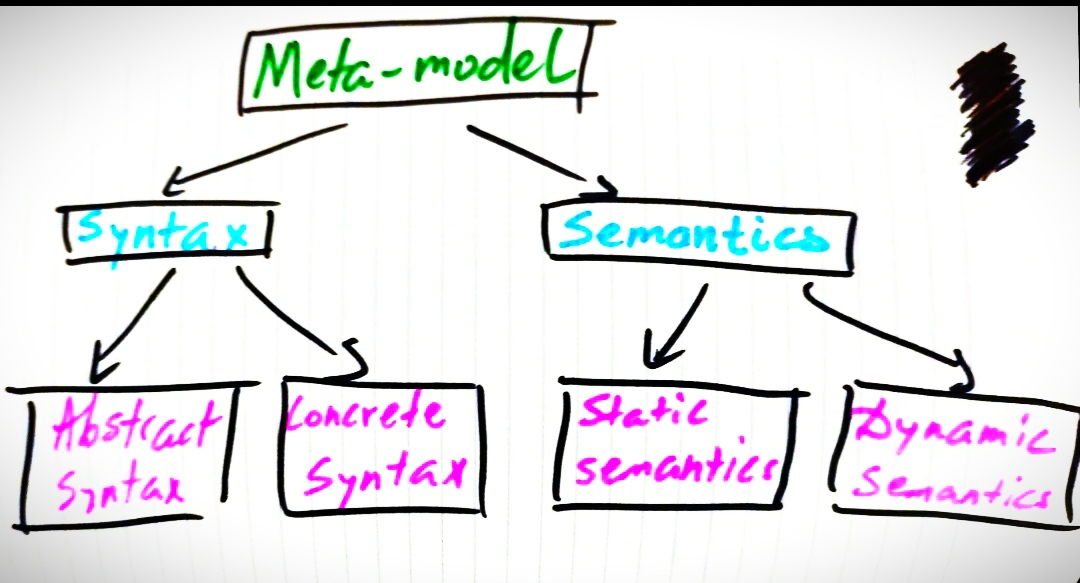 Meta-model
Syntax
Semantics
Abstract
Syntax
Concrete
Syntax
Static
semantics
Dynamic
Semantics